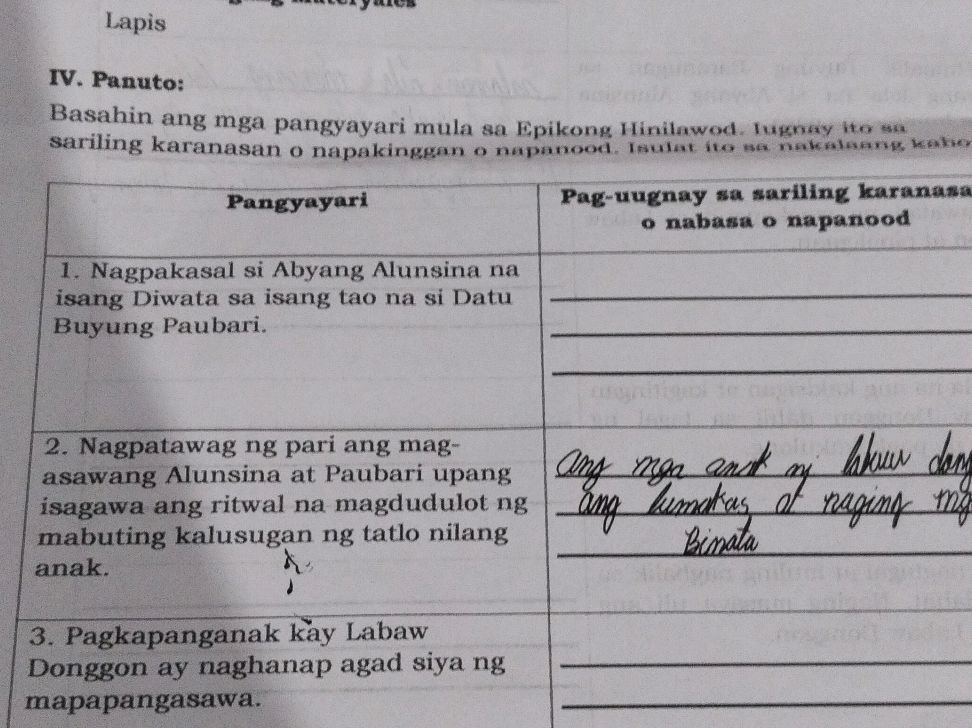 Lapis
IV. Panuto:
Basahin ang mga pangyayari mula sa Epikong Hinilawod. Iugnay ito sa
sariling karanasan o napakinggan o napanood. Isulat ito sa nakalaang kaho
Pangyayari
Pag-uugnay sa sariling karanasa
o nabasa o napanood
1. Nagpakasal si Abyang Alunsina na
isang Diwata sa isang tao na si Datu
Buyung Paubari.
2. Nagpatawag ng pari ang mag-
asawang Alunsina at Paubari upang
isagawa ang ritwal na magdudulot ng
mabuting kalusugan ng tatlo nilang
anak.
ang mga anak ay labaw dong
ang lumakas at naging mg
Binata
3. Pagkapanganak kay Labaw
Donggon ay naghanap agad siya ng
mapapangasawa.